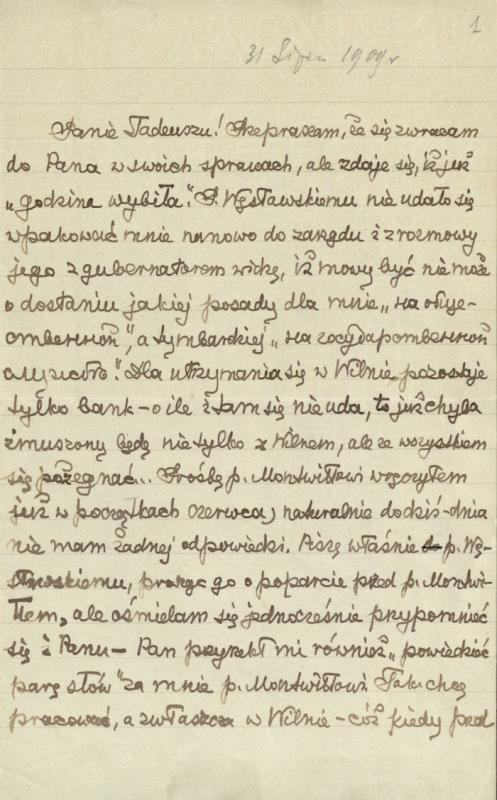 1
31 Lipca 1909 r
Panie Tadeuszu! Przepraszam, że się zwracam
do Pana w swoich sprawach, ale zdaje się, iż już
„godzina wybiła". P. Węsławskiemu nie udało się
wpakować mnie nanowo do zarządu i z rozmowy
jego z gubernatorem widzę, iż mowy być nie może
o dostaniu jakiej posady dla mnie „на обще-
ственной", a tymbardziej „на государственной
службе". Dla utrzymania się w Wilnie pozostaje
tylko bank – o ile i tam się nie uda, to już chyba
zmuszony będę nie tylko z Wilnem, ale ze wszystkiem
się pożegnać... Prośbę p. Montwiłłowi wręczyłem
już w początkach czerwca, naturalnie do dziś-dnia
nie mam żadnej odpowiedzi. Piszę właśnie p. Wę-
sławskiemu, prosząc go o poparcie przed p. Montwi-
łłem, ale ośmielam się jednocześnie przypomnieć
się i Panu – Pan przyrzekł mi również „powiedzieć
parę słów" za mnie p. Montwiłłowi. Tak chcę
pracować, a zwłaszcza w Wilnie – cóż kiedy przed